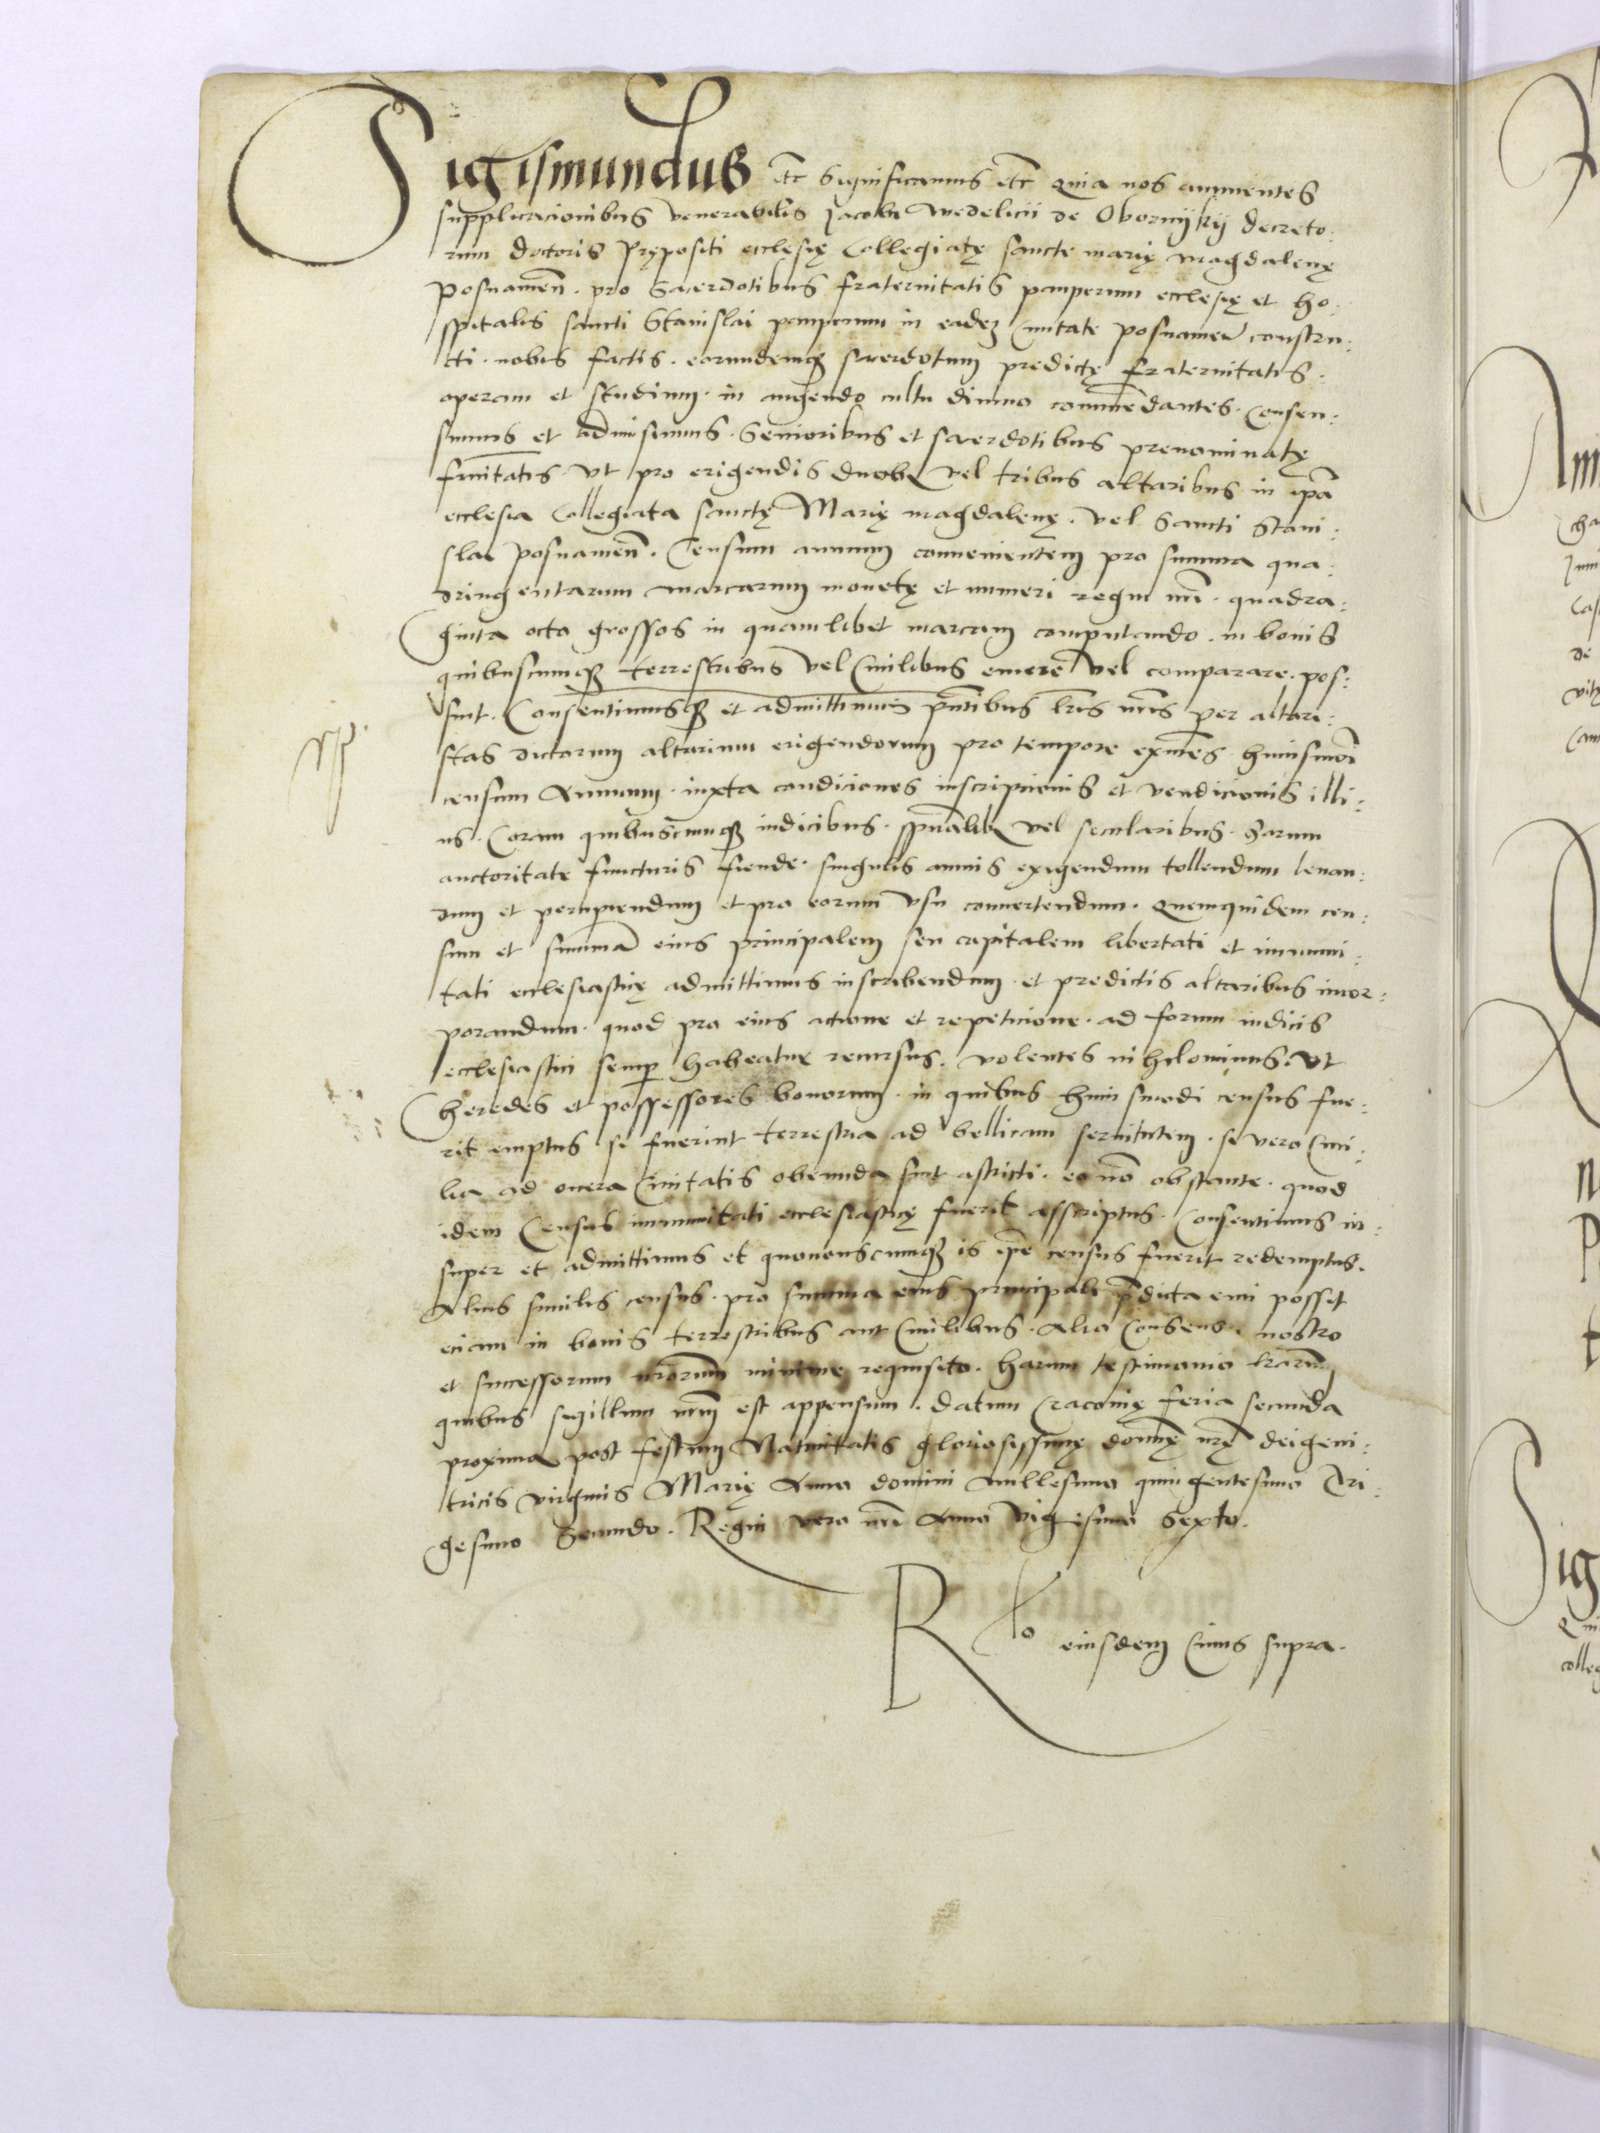 Sigismundus etc Significamus etc Quia nos annuentes
supplicacionibus venerabilis Jacobi Wedelicii de Obornijkij decreto:
rum doctoris Prępositi ecclesię Collegiatę sancte marię magdalenę
Posnanien̄. pro Sacerdotibus fraternitatis pauperum ecclesię et ho:
spitalis sancti Stanislai pauperum in eadeʒ Ciuitate posnanien̄ constru:
cti. nobis factis. eorundemqʒ sacerdotum predictę fraternitatis.
operam et studium. in augendo cultu diuino com̄endantes. Consen:
simus et admisimus. Senioribus et sacerdotibus prenominatę
fr̄nitatis vt pro erigendis duobʒ vel tribus altaribus in ip̄a
ecclesia Collegiata sanctę Marię magdalenę. vel Sancti Stani:
slai Posnanien̄. Censum annuum conuenientem pro summa qua:
dringentarum marcarum monetę et numeri regni nr̄i. quadra:
ginta octo grossos in quamlibet marcam computando. in bonis
quibuscumqʒ terrestribus vel Ciuilibus emere vel comparare. pos:
sint. Consentimusqʒ et admittimus pn̄tibus lr̄is nr̄is per altari:
stas dictarum altarium erigendorum pro tempore exn̄tes. huiusmōi
censum Annuum. iuxta condiciones inscripcionis et vendicionis illi:
us. Coram quibuscumqʒ iudicibus. spūalibʒ vel secularibus. harum
auctoritate functuris fiende. singulis annis exigendum tollendum leuan:
dum et percipiendum et pro eorum vsu conuertendum. Quemquidem cen:
sum et sum̄a eius principalem seu capitalem libertati et immuni:
tati ecclesiasticę admittimus inscribendum. et predictis altaribus incor:
porandum. quod pro eius actione et repeticione. ad forum iudicis
ecclesiastici semp̲ habeatur recursus. volentes nihilominus. vt
heredes et possessores bonorum. in quibus huiusmodi census fue:
rit emptus si fuerint terrestria ad bellicam seruitutem. si vero Ciui:
lia ad onera Ciuitatis obeunda sint astricti. eo nō obstante. quod
idem Census immunitati ecclesiasticę fuerit asscriptus. Consentimus in:
super et admittimus et quouiscumqʒ is ip̄e census fuerit redemptus.
Alius similis census. pro summa eius principali p̄dicta emi possit
eciam in bonis terrestribus aut Ciuilibus. alio Consensu. nostro
et successorum nr̄orum minime requisito. harum testimonio lr̄arum
quibus sigillum nr̄m est appensum. datum Cracouię feria secunda
proxima post festum Natiuitatis gloriosissimę domnę nr̄ę deigeni:
tricis virginis Marię Anno domini millesimo quingentesimo Tri:
gesimo Secundo. Regni vero nr̄i Anno Vigesimo Sexto.
R̄lo eiusdem Cuius supra.